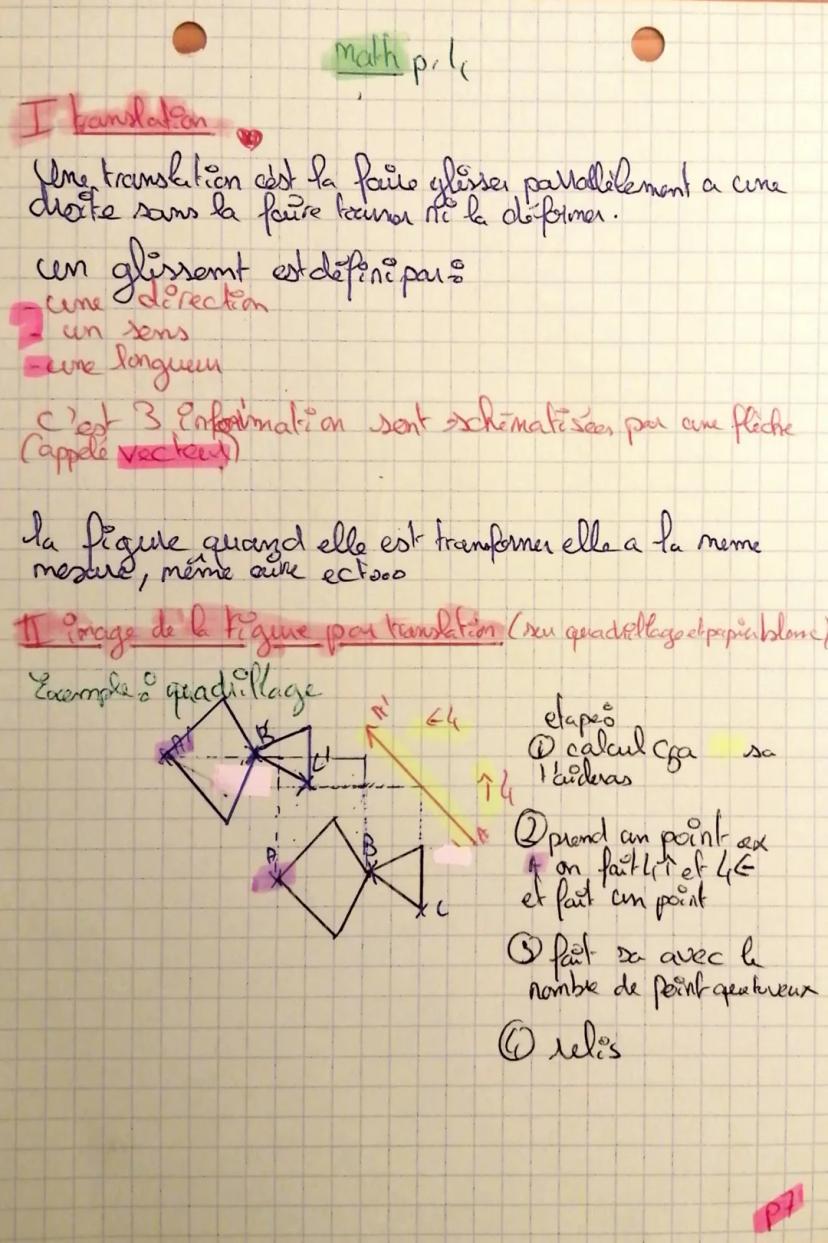 math p. 4
I translation
Une translation c'est la faire glisser parallèlement a une
droite sans la faire tourner ni la déformer.
un glissemt est défini par :
- une direction
- un sens
- une longueur
c'est 3 information sont schématisées par une flèche
(appelé vecteur)
la figure quand elle est transformer elle a la meme
mesure, même aire ect...
II image de la figure par translation (sur quadrillage et papier blanc)
Exemple : quadrillage
A'
B'
C'
A'
←4
↑4
A
A
B
C
etape :
① calcul sa
l'aideras
② prend un point ex
A on fait 4↑ et 4←
et fait un point
③ fait sa avec le
nombre de point que tu veux
④ relis
p7